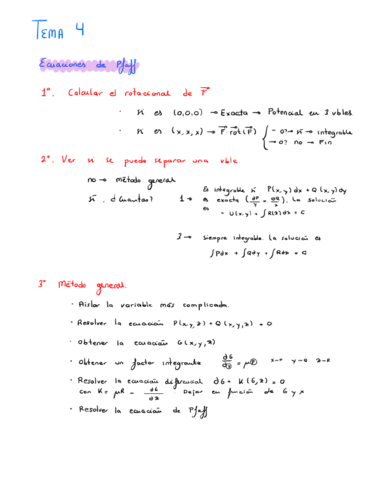 TEMA 4
Ecuaciones de Pfaff
1º. Calcular el rotacional de F
· Si es (0,0,0) → Exacta → Potencial en 3 vbles.
· Si es (x,x,x) → F rot(F) { = 0? → Si → integrable
→ 0? no → Fin
2º. Ver si se puede separar una vble.
no → método general
Si. ¿Cuántas? 1 → Es integrable si P(x,y)dx + Q(x,y)dy
es exacta (∂P/∂y = ∂Q/∂x). La solución
es = U(x,y) + ∫R(z)dz = C
3 → Siempre integrable. La solución es
∫Pdx + ∫Qdy + ∫Rdz = C
3º Método general.
· Aislar la variable más complicada.
· Resolver la ecuación P(x,y,z) + Q(x,y,z) = 0
· Obtener la ecuación G(x,y,z)
· Obtener un factor integrante
· Resolver la ecuación diferencial dG + K(G,z) = 0
con K = μR - dG/dz Dejar en función de G y z
· Resolver la ecuación de Pfaff